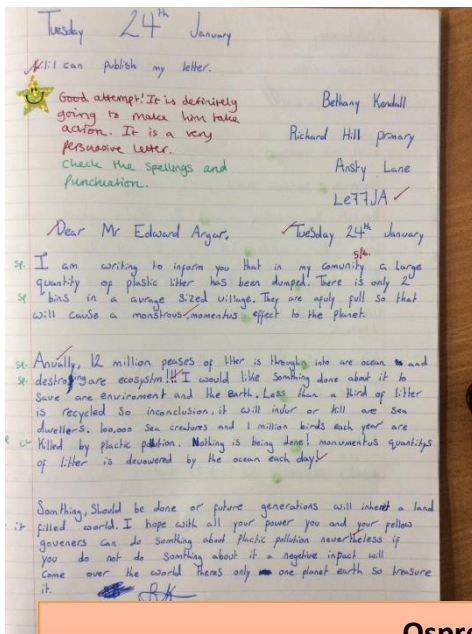 Tuesday 24th January
WILF: I can publish my letter.
Good attempt! It is definitely
going to make him take
action. It is a very
persuasive letter.
Check the spellings and
punctuation.
Bethany Kendall
Richard Hill primary
Ansty Lane
Le77JA
Dear Mr Edward Argar,
Tuesday 24th January
sp. I am writing to inform you that in my comunity a large
quantity of plastic litter has been dumped. There is only 2
sp bins in a avrage sized village. They are afuly full so that
will cause a monstrous, momentus effect to the planet.
sp. Anually, 12 million peases of litter is throughn into are ocean and
sp. destroying are ecosystm!!! I would like somthing done about it to
save are enviroment and the Earth. Less than a third of litter
is recycled so inconclusion, it will injur or kill are sea
dwellers. 100,000 sea creatures and 1 million birds each year are
killed by plactic pollution. Nothing is being done! monumentus quantitys
of litter is devowered by the ocean each day!
Somthing, Should be done or future generations will inherit a land
filled world. I hope with all your power you and your fellow
goveners can do somthing about plactic pollution nevertheless if
you do not do somthing about it a negetive inpact will
come over the world theres only one planet earth so treasure
it. BK
Ospre